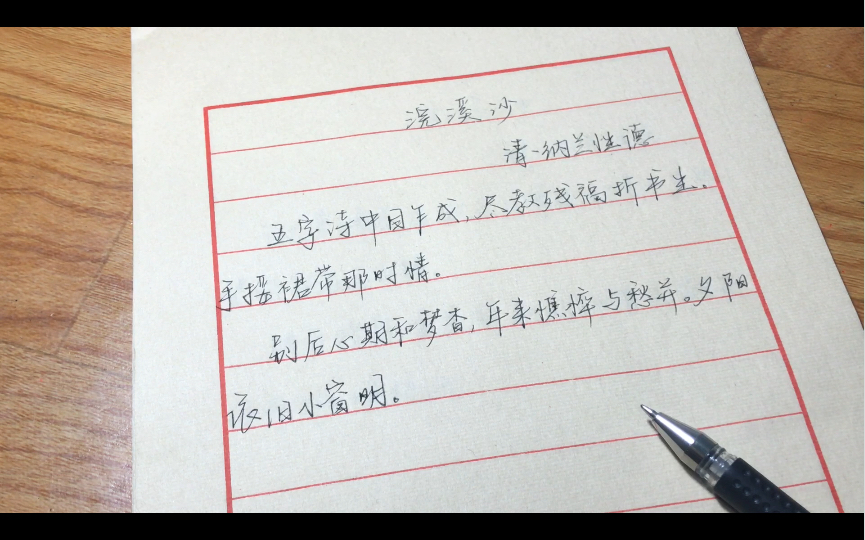 浣溪沙
清·纳兰性德
五字诗中目乍成，尽教残福折书生。
手挼裙带那时情。
别后心期和梦杳，年来憔悴与愁并。夕阳
依旧小窗明。